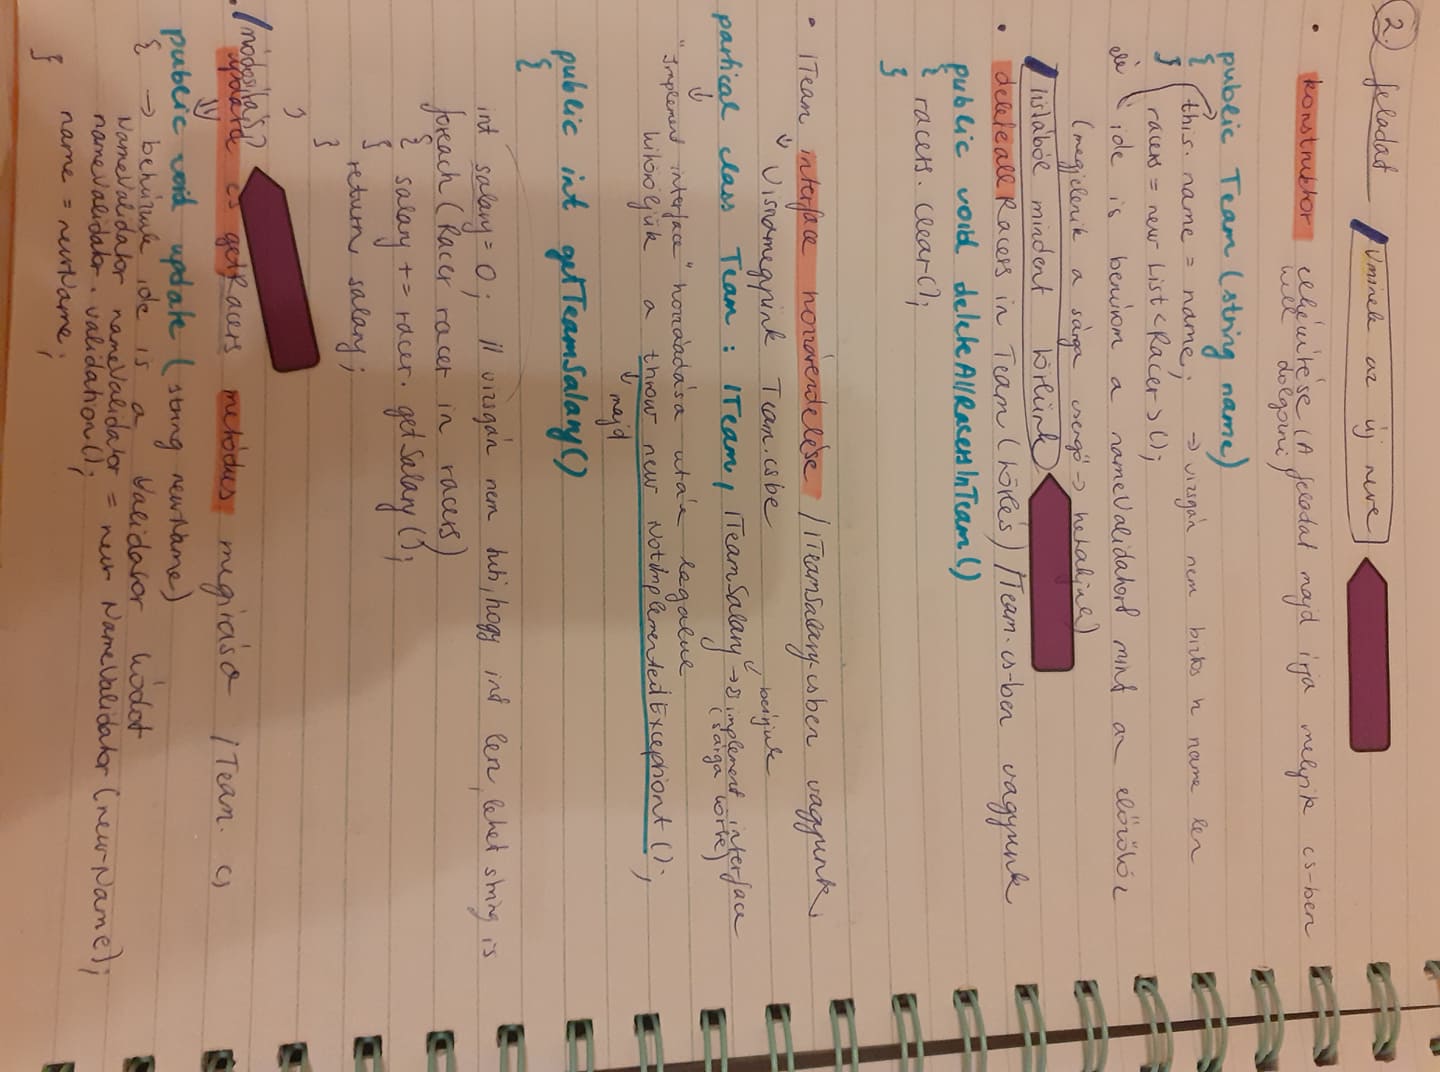 2. feladat
Vminek az új neve
• konstruktor elkészítése (A feladat majd írja melyik cs-ben
kell dolgozni)
public Team (string name)
{ this.name = name; → vizsgán nem biztos h name len
racers = new List<Racer>();
}
ide is beírom a nameValidatort mint az előzőhöz
(megjelenik a sárga
listából mindent törlünk
• deleteallRacers in Team (törlés) /Team.cs-ben vagyunk
public void deleteAllRacersInTeam()
{
racers.clear();
}
• ITeam interface hozzárendelése /ITeamSalary.csben vagyunk,
↓ Visszamegyünk Team.csbe
beírjuk
partical class Team : ITeam, ITeamSalary → implement interface
(sárga körte)
"Implement interface" hozzáadása után legalul
kitöröljük a throw new NotImplementedExceptiont();
majd
public int getTeamSalary()
{
int salary = 0; // vizsgán nem biti, hogy int len, lehet string is
foreach (Racer racer in racers)
{
salary += racer.getSalary();
}
return salary;
}
/módosítás?
• update és getRacers metódus megírása /Team.cs
public void update (string newName)
{ → behúzunk ide is a Validator kódot
NameValidator nameValidator = new NameValidator(new-Name);
nameValidator.validation();
name = newName;
}